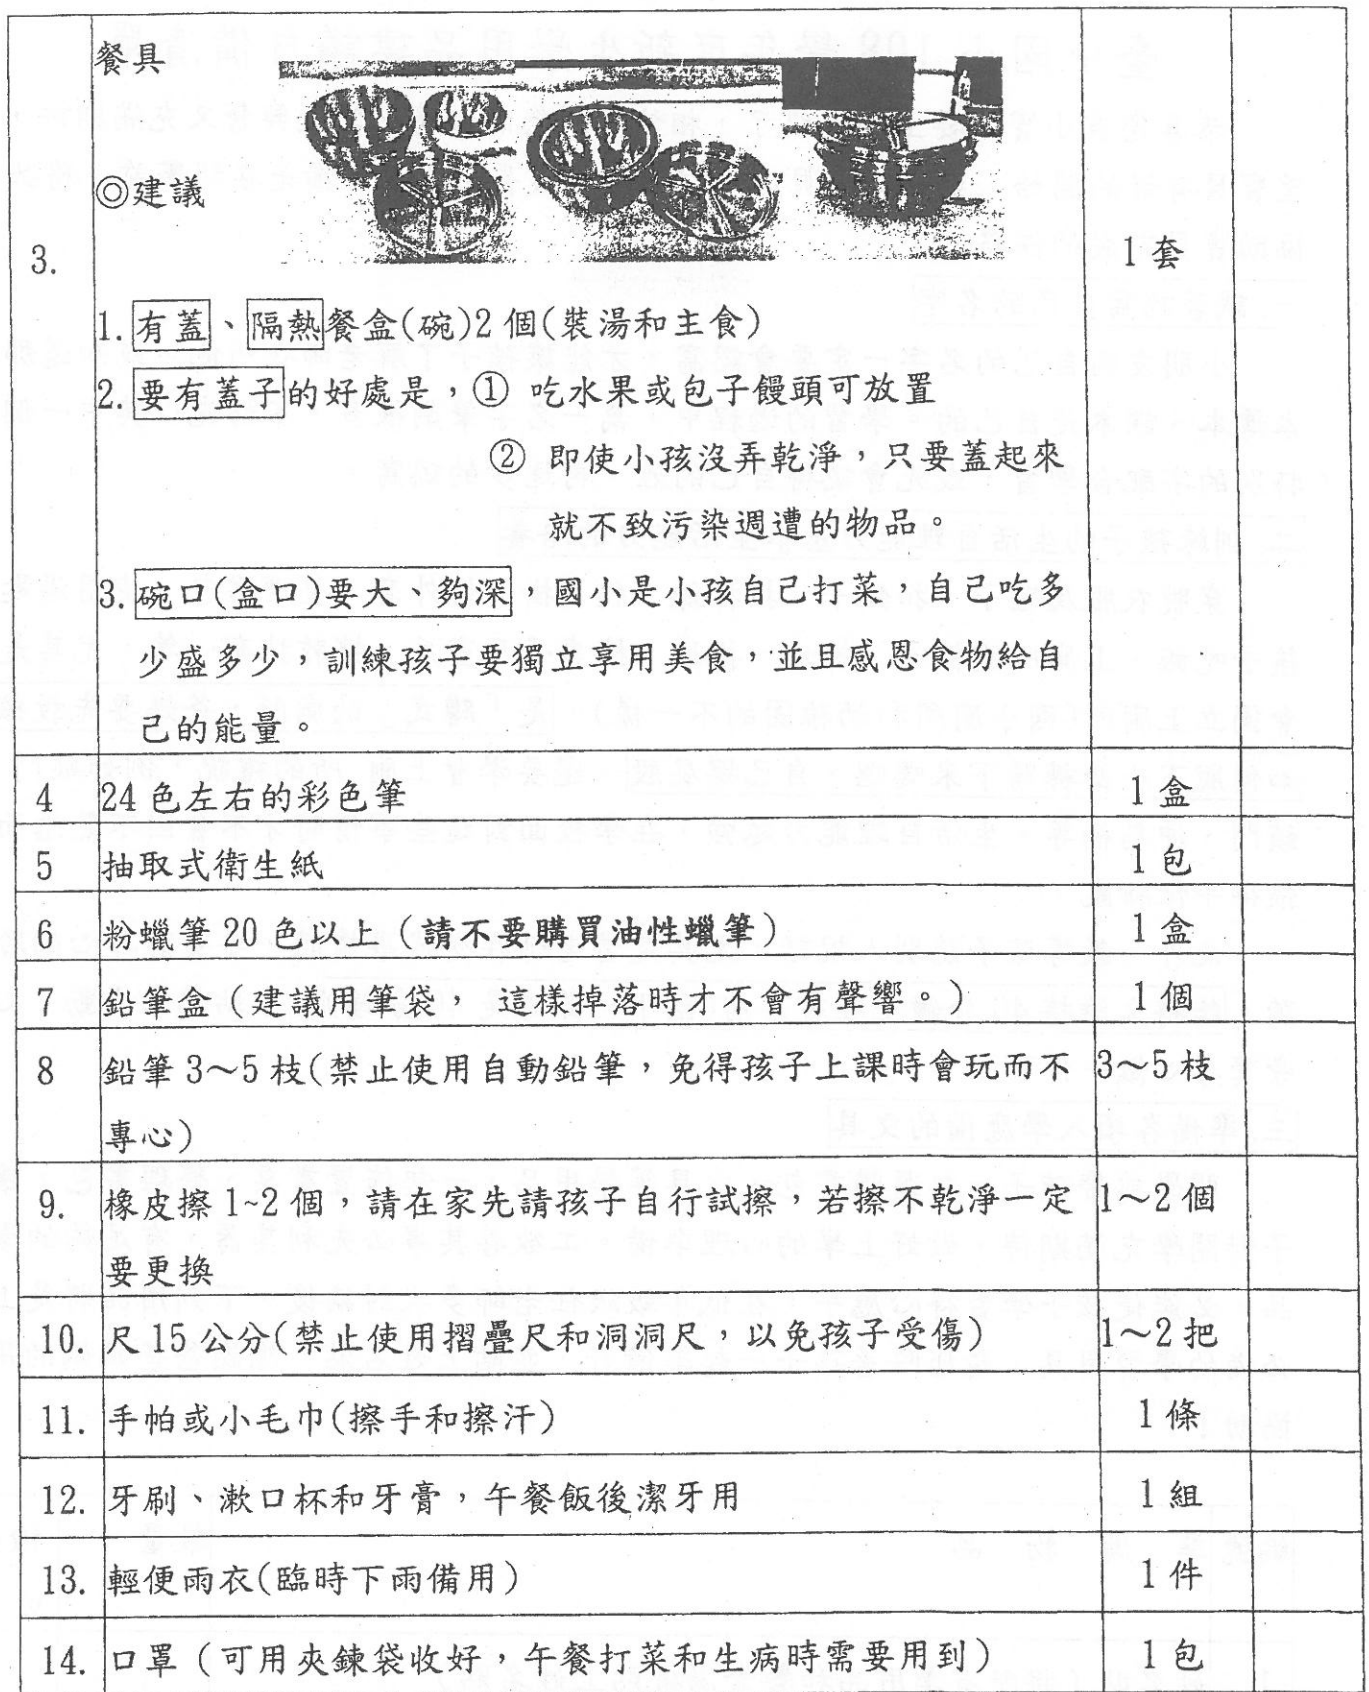 餐具
◎建議
3.
1套
1.有蓋、隔熱餐盒(碗)2個(裝湯和主食)
2.要有蓋子的好處是，① 吃水果或包子饅頭可放置
② 即使小孩沒弄乾淨，只要蓋起來
就不致污染週遭的物品。
3.碗口(盒口)要大、夠深，國小是小孩自己打菜，自己吃多
少盛多少，訓練孩子要獨立享用美食，並且感恩食物給自
己的能量。
4 24色左右的彩色筆 1盒
5 抽取式衛生紙 1包
6 粉蠟筆20色以上（請不要購買油性蠟筆） 1盒
7 鉛筆盒（建議用筆袋， 這樣掉落時才不會有聲響。） 1個
8 鉛筆3～5枝(禁止使用自動鉛筆，免得孩子上課時會玩而不 3～5枝
專心)
9. 橡皮擦1~2個，請在家先請孩子自行試擦，若擦不乾淨一定 1～2個
要更換
10. 尺15公分(禁止使用摺疊尺和洞洞尺，以免孩子受傷) 1～2把
11. 手帕或小毛巾(擦手和擦汗) 1條
12. 牙刷、漱口杯和牙膏，午餐飯後潔牙用 1組
13. 輕便雨衣(臨時下雨備用) 1件
14. 口罩（可用夾鍊袋收好，午餐打菜和生病時需要用到） 1包